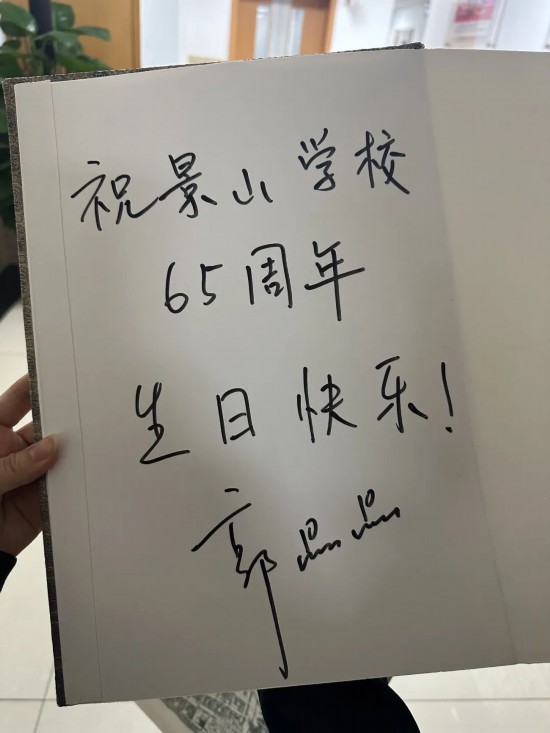 祝景山学校
65周年
生日快乐！
郭晶晶